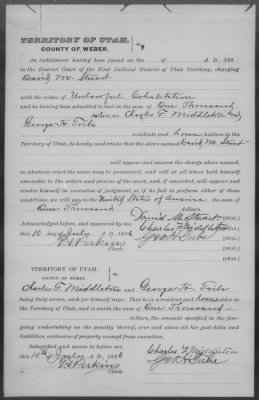 TERRITORY OF UTAH,
COUNTY OF WEBER.
An indictment having been found on the of A. D. 188
in the District Court of the First Judicial District of Utah Territory, charging
David M. Stuart
with the crime of Unlawful Cohabitation
and he having been admitted to bail in the sum of One Thousand
dollars, we Charles F. Middleton and
George H. Tribe
residents and house holders in the
Territory of Utah, do hereby undertake that the above named David M. Stuart
will appear and answer the charge above named,
in whatever court the same may be prosecuted, and will at all times hold himself
amenable to the orders and process of the court, and if convicted, will appear and
render himself in execution of judgment, or, if he fail to perform either of these
conditions, we will pay to the United States of America the sum of
One Thousand dollars.
Acknowledged and approved by me, David M. Stuart [SEAL.]
this 10 day of July A. D., 1886 Charles F. Middleton [SEAL.]
Perkins Geo H. Tribe [SEAL.]
Clerk. [SEAL.]
TERRITORY OF UTAH, ss.
COUNTY OF WEBER.
Charles F. Middleton and George H. Tribe
being duly sworn, each for himself says: That he is a resident and house holder
in the Territory of Utah, and is worth the sum of One Thousand
dollars, the amount specified in the fore-
going undertaking as the penalty thereof, over and above all his just debts and
liabilities, exclusive of property exempt from execution.
Subscribed and sworn to before me, Charles F. Middleton
this 10th July A. D., 1886 Geo H. Tribe
Perkins
Clerk